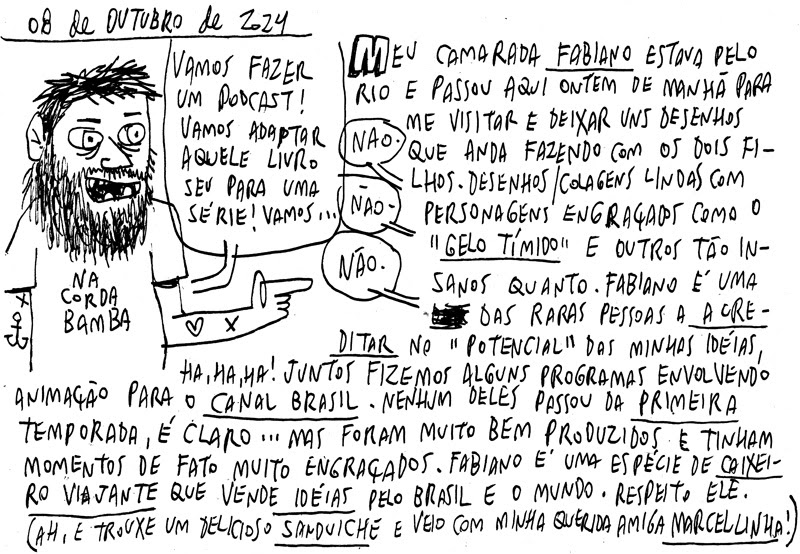 08 de OUTUBRO de 2024
VAMOS FAZER
UM PODCAST!
VAMOS ADAPTAR
AQUELE LIVRO
SEU PARA UMA
SÉRIE! VAMOS...
NÃO.
NÃO.
NÃO.
NA
CORDA
BAMBA
MEU CAMARADA FABIANO ESTAVA PELO
RIO E PASSOU AQUI ONTEM DE MANHÃ PARA
ME VISITAR E DEIXAR UNS DESENHOS
QUE ANDA FAZENDO COM OS DOIS FI-
LHOS. DESENHOS/COLAGENS LINDAS COM
PERSONAGENS ENGRAÇADOS COMO O
"GELO TÍMIDO" E OUTROS TÃO IN-
SANOS QUANTO. FABIANO É UMA
DAS RARAS PESSOAS A ACRE-
DITAR NO "POTENCIAL" DAS MINHAS IDÉIAS,
HA, HA, HA! JUNTOS FIZEMOS ALGUNS PROGRAMAS ENVOLVENDO
ANIMAÇÃO PARA O CANAL BRASIL. NENHUM DELES PASSOU DA PRIMEIRA
TEMPORADA, É CLARO... MAS FORAM MUITO BEM PRODUZIDOS E TINHAM
MOMENTOS DE FATO MUITO ENGRAÇADOS. FABIANO É UMA ESPÉCIE DE CAIXEI-
RO VIAJANTE QUE VENDE IDÉIAS PELO BRASIL E O MUNDO. RESPEITO ELE.
(AH, E TROUXE UM DELICIOSO SANDUICHE E VEIO COM MINHA QUERIDA AMIGA MARCELLINHA!)